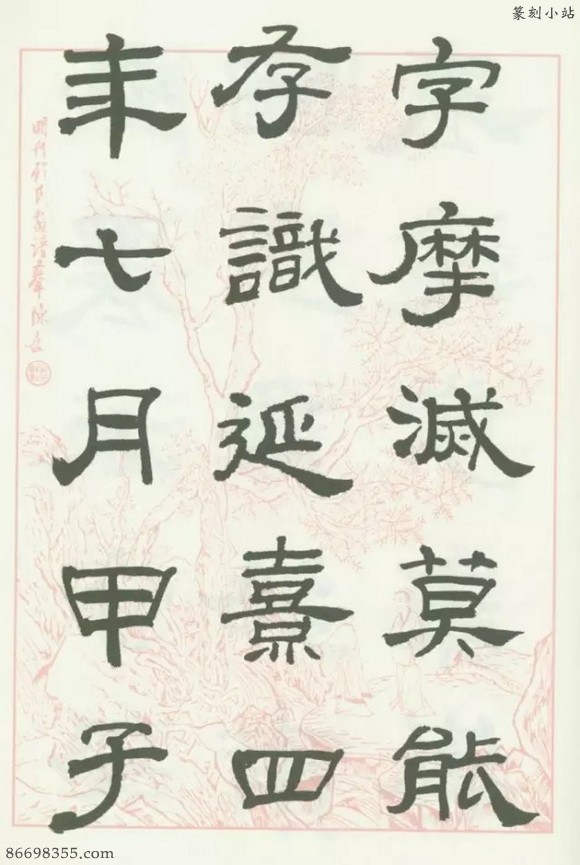 篆刻小站
字摩滅莫能
存識延熹四
年七月甲子
86698355.com